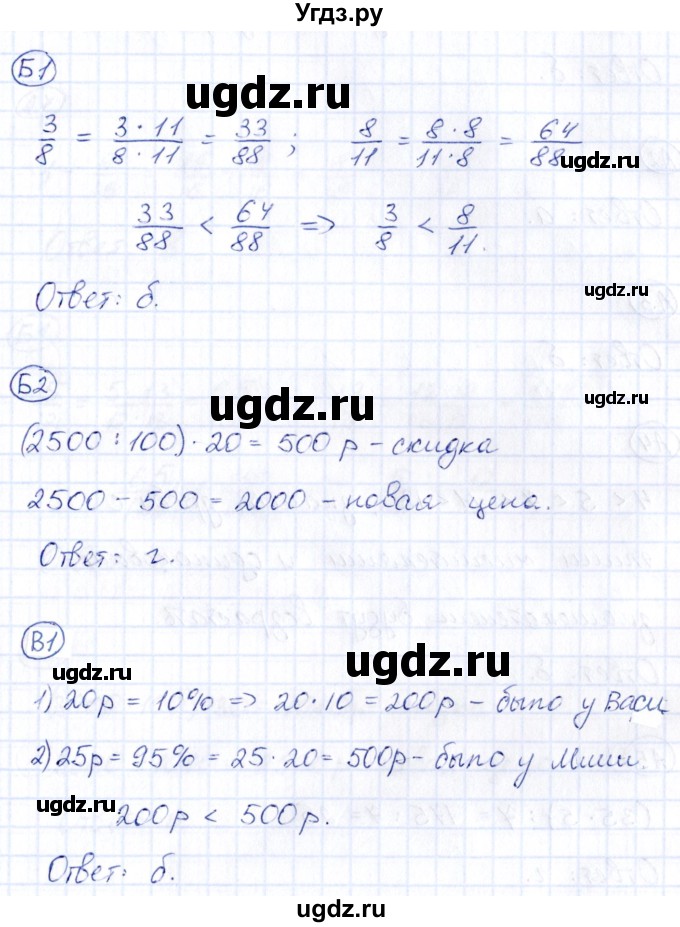 Угдз.ру
Б1
ugdz.ru
3/8 = 3·11/8·11 = 33/88 ; 8/11 = 8·8/11·8 = 64/88
ugdz.ru
33/88 < 64/88 => 3/8 < 8/11.
Ответ: б.
ugdz.ru
Б2
ugdz.ru
(2500 : 100) · 20 = 500 р - скидка
ugdz.ru
2500 - 500 = 2000 - новая цена.
Ответ: г.
В1
ugdz.ru
ugdz.ru
1) 20р = 10% => 20·10 = 200р - было у Васи
2) 25р = 95% = 25·20 = 500р - было у Миши.
ugdz.ru
ugdz.ru
200р < 500р.
Ответ: б.
ugdz.ru